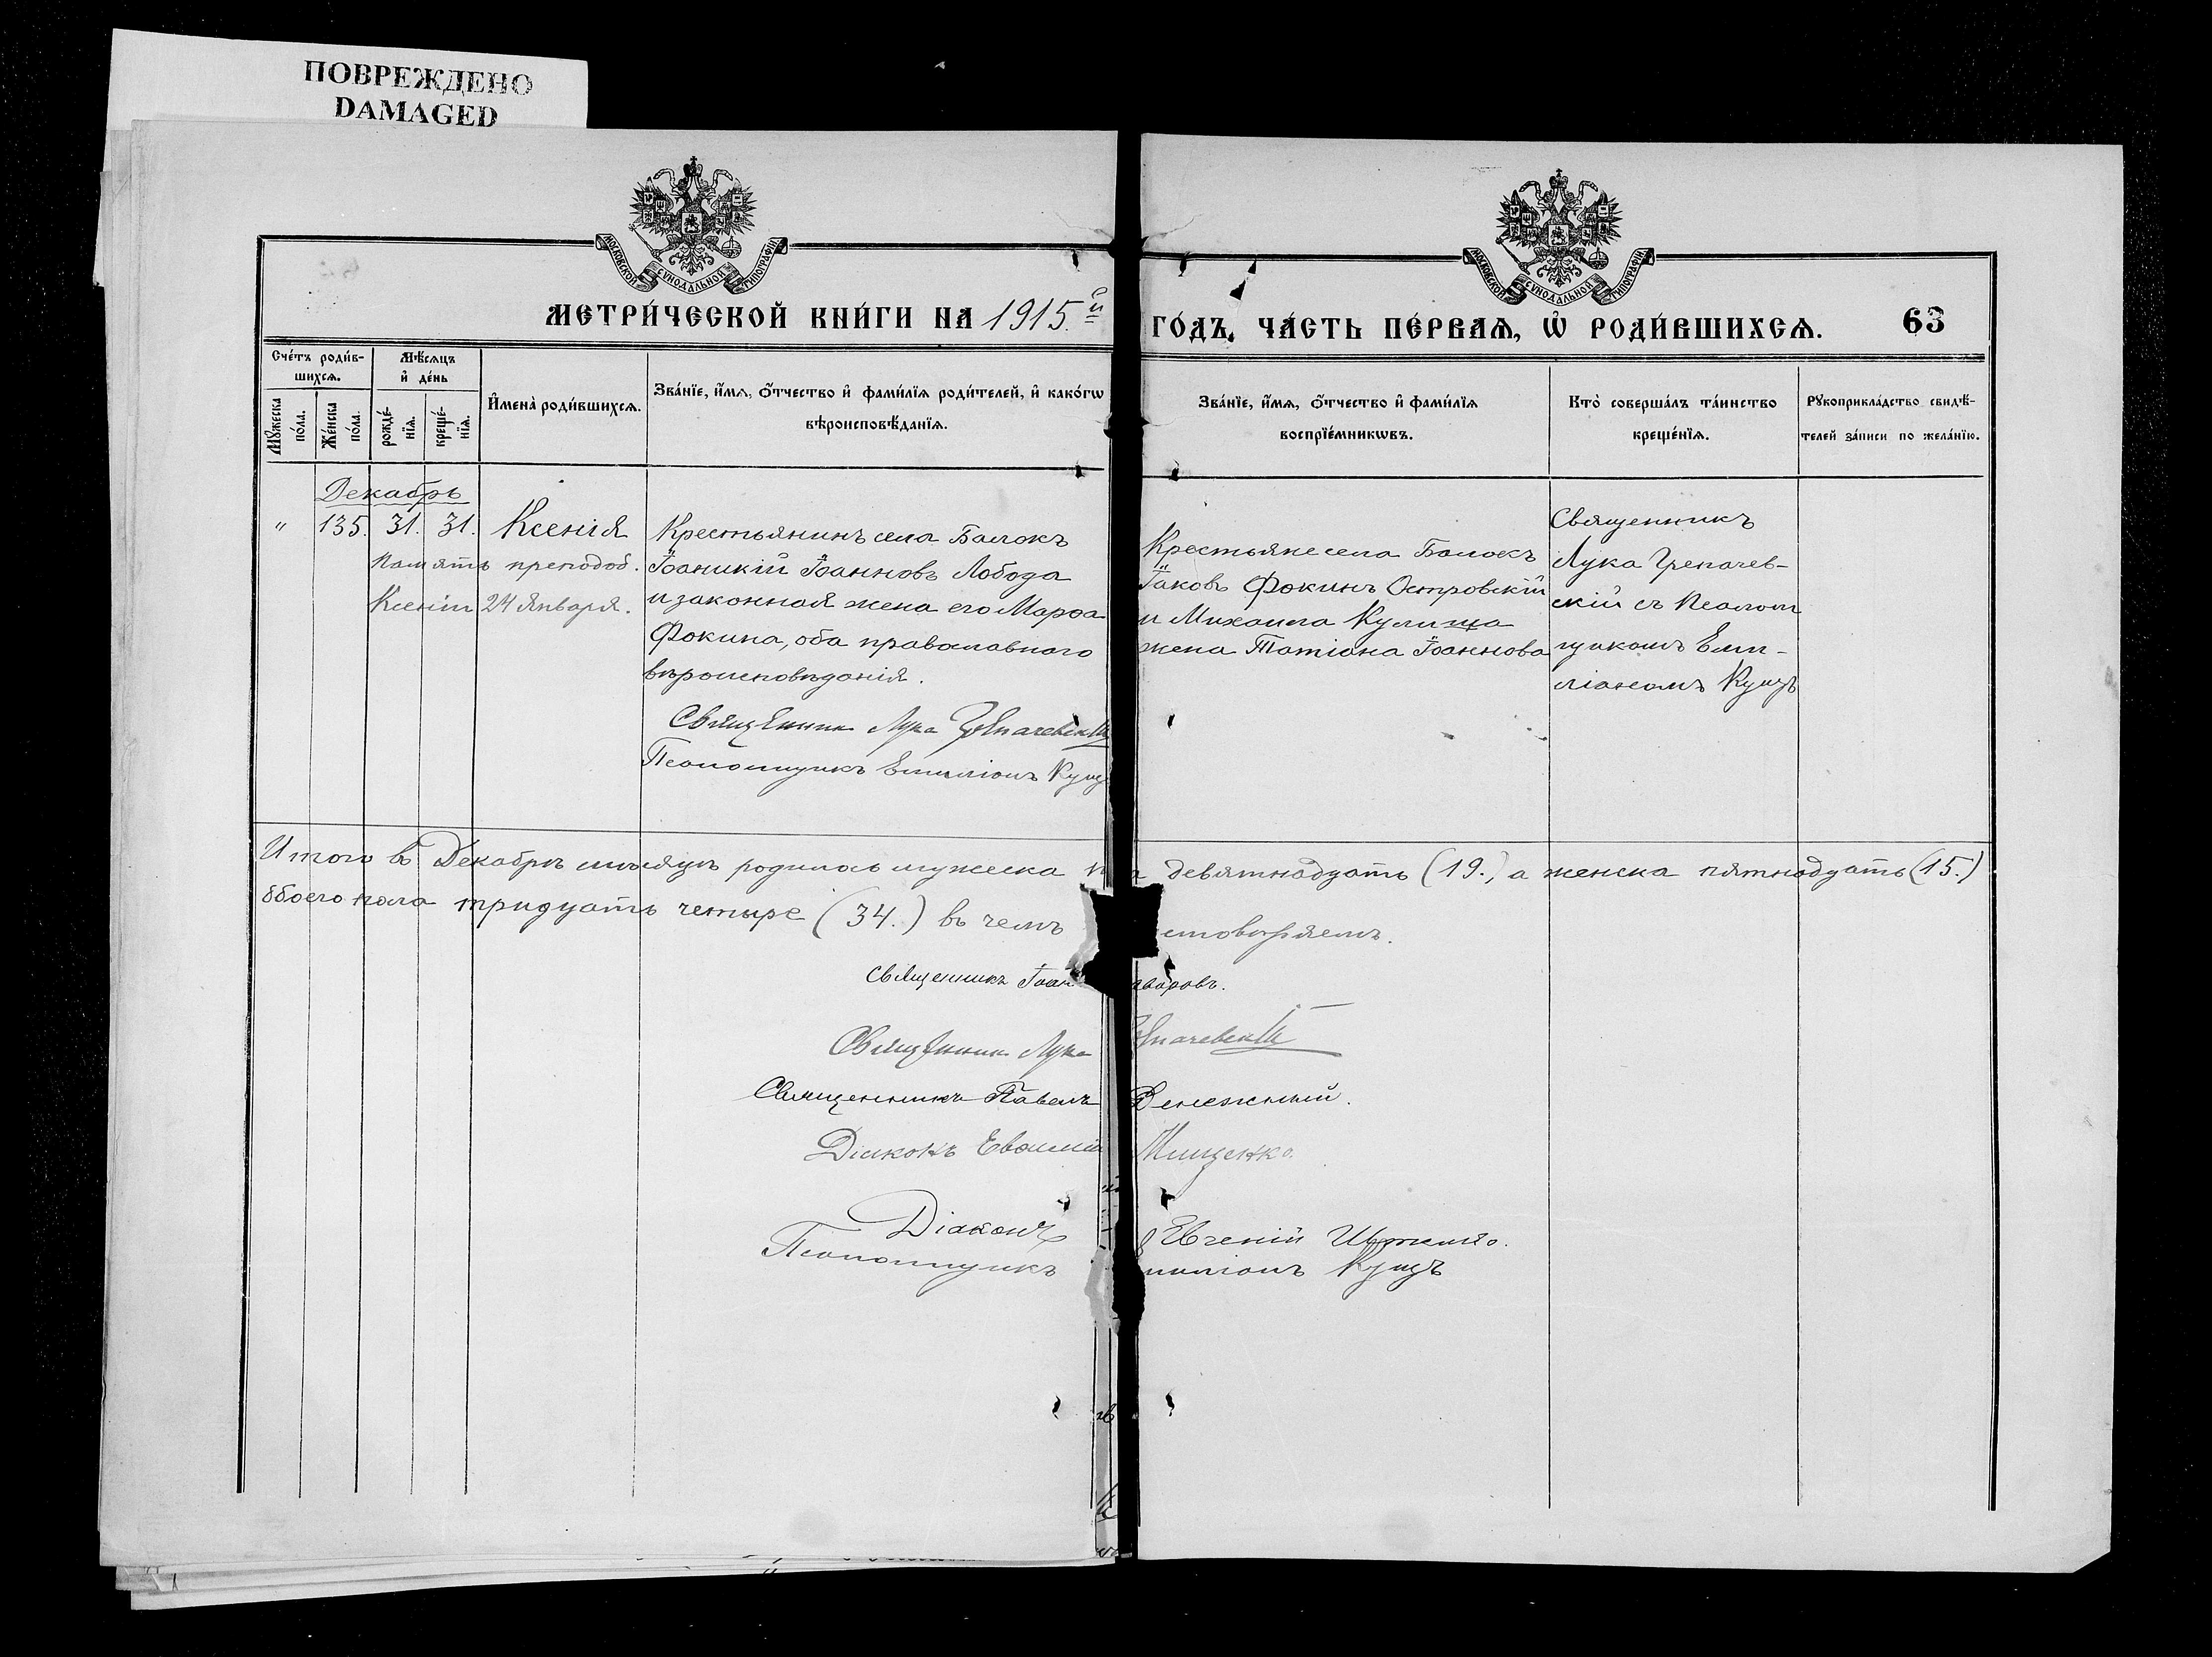 ПОВРЕЖДЕНО
DAMAGED
МОСКОВСКОЙ СѴНОДАЛЬНОЙ ТИПОГРАФІИ
МОСКОВСКОЙ СѴНОДАЛЬНОЙ ТИПОГРАФІИ
МЕТРИ́ЧЕСКОЙ КНИ́ГИ НА 1915.й
ГО́ДЪ, ЧА́СТЬ ПЕ́РВАѦ, Ѡ҆ РОДИ́ВШИХСѦ. 63
Сче́тъ роди́в-
шихсѧ.
Мꙋ́жеска по́ла.
Же́нска по́ла.
Мѣ́сѧцъ
и҆ де́нь
рожде́-
нїѧ.
креще́-
нїѧ.
И҆мена̀ роди́вшихсѧ.
Зва́нїе, и҆́мѧ, ѻ҆́тчество и҆ фами́лїѧ роди́телей, и҆ како́гѡ
вѣроисповѣ́данїѧ.
Зва́нїе, и҆́мѧ, ѻ҆́тчество и҆ фами́лїѧ
воспрїе́мникѡвъ.
Кто̀ соверша́лъ та́инство
креще́нїѧ.
Рꙋкоприкла́дство свидѣ́-
телей за́писи по жела́нїю.
Декабрь
" 135. 31. 31. Ксенія
Память преподоб.
Ксеніи 24 января.
Крестьянинъ села Балокъ
Іоаникій Іоанновъ Лобода
и законная жена его Марѳа
Фокина, оба православнаго
вѣроисповѣданія.
Священникъ Лука
Псаломщикъ Емиліанъ Кущъ
Крестьяне села Балокъ
Іаковъ Фокинъ Островскій
и Михаила Кулиша
жена Татіана Іоаннова
Священникъ
Лука
скій съ Псалом
щикомъ Еми-
ліаномъ Кущъ
Итого въ Декабрѣ мѣсяцѣ родилось мужеска
девятнадцать (19.) а женска пятнадцать (15.)
обоего пола тридцать четыре (34.) въ чемъ
стовѣряемъ.
Священникъ Іоан
Священникъ Лука
Священникъ Павелъ
Діаконъ
Мищенко.
Діаконъ
Евгеній
Псаломщикъ
миліанъ Кущъ